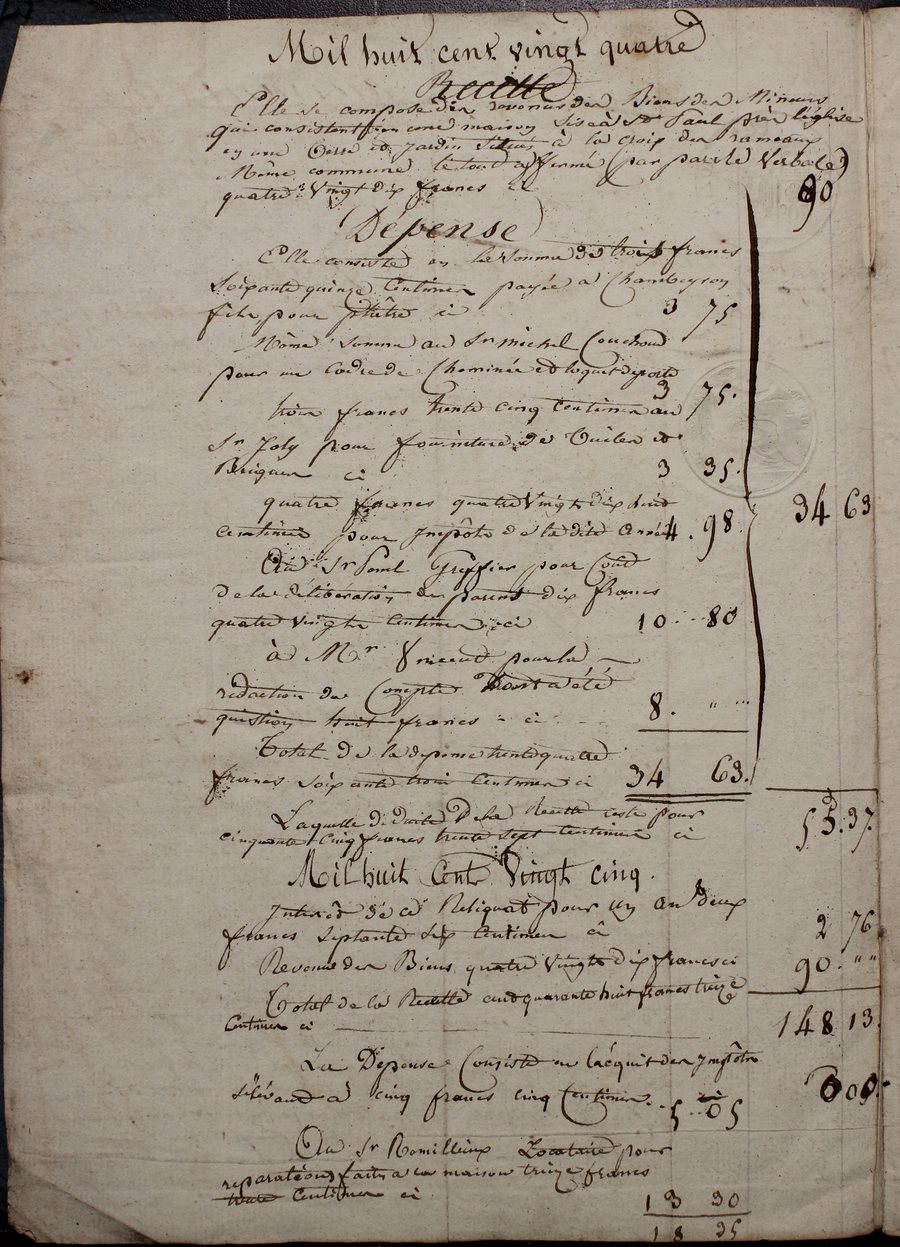 Mil huit cent vingt quatre
Recette
Elle se compose des revenus des Biens des Mineurs
qui consistent en une maison sise à St Paul près l'église
en une Terre et Jardin situés à la croix des rameaux
Même commune le tout affermé par parole verbale
quatre Vingt dix francs ci 90
Dépense
Elle consiste en la somme de trois francs
soixante quinze Centimes payée à Chambeyron
fils pour plâtre ci 3 75
Même somme au Sr michel Couchoud
pour un Cadre de Cheminée et loquet de porte
3 75.
trois francs trente cinq Centimes au
Sr Joly pour fourniture de Tuiles et
Briques ci 3 35.
quatre francs quatre Vingt dix huit
centimes pour Impôts de la dite année 4. 98 34 63
Au Sr Greffier pour Coût
de la délibération des parens dix francs
quatre vingts Centimes ci 10 80
à Mr pour la
rédaction du Compte dont a été
question huit francs ci 8. " "
Total de la depense trente quatre
francs soixante trois Centimes ci 34 63.
Laquelle déduite De la Recette reste pour
cinquante cinq francs trente sept Centimes ci 55.37.
Mil huit Cent Vingt cinq.
Interêt de ce Reliquat pour un an deux
francs septante six Centimes ci 2 76
Revenu des Biens quatre vingts dix francs ci 90. " "
Total de la Recette cent quarante huit francs treize
Centimes ci 148 13.
La Dépense Consiste en l'acquit des Impôts
s'élévant à cinq francs cinq Centimes 5 05
Au Sr Romilleux Locataire pour
reparations faits a la maison treize francs
trente Centimes ci 13 30
18 35